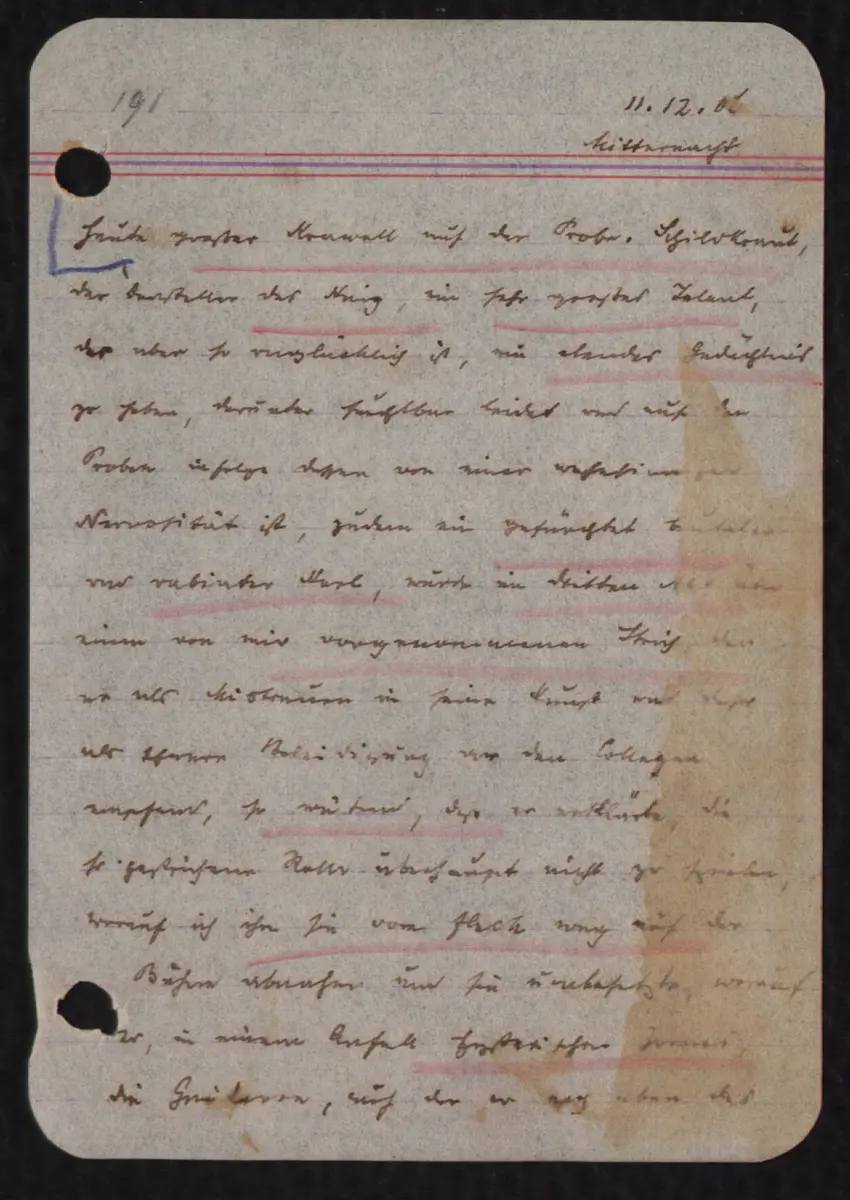 191
11.12.02
Mitternacht
Heute grosser Krawall auf der Probe. Schildkraut,
der Darsteller des König, ein sehr grosses Talent,
der aber so unglücklich ist, ein elendes Gedächtnis
zu haben, darunter furchtbar leidet und auf den
Proben infolge dessen von einer wahnsinnigen
Nervosität ist, zudem ein gefürchtet brutaler
und rabiater Kerl, wurde im dritten Akt über
einen von mir vorgenommenen Strich, den
er als Mistrauen in seine Kunst und
als schwere Beleidigung vor den Collegen
empfand, so wütend, dass er erklärte, die
so gestrichene Rolle überhaupt nicht zu spielen,
worauf ich ihm sie vom Fleck weg auf der
Bühne abnahm und sie umbesetzte, worauf
er, in einem Anfall hysterischen Zornes,
die Gallerie, auf der er oben das